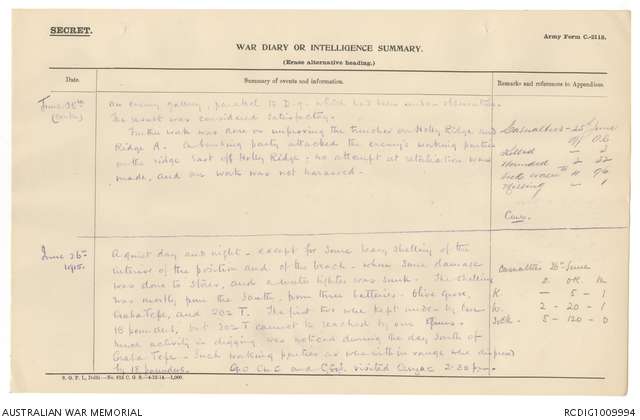 SECRET.
Army Form C.-2118.
WAR DIARY OR INTELLIGENCE SUMMARY.
(Erase alternative heading.)
Date.
Summary of events and information.
Remarks and references to Appendices.
June 25th
an enemy gallery, parallel to D.9. which has been under observation.
The result was considered satisfactory.
Further work was done on improving the trenches on Holly Ridge and
Ridge A. A bombing party attacked the enemy's working parties
on the ridge East of Holly Ridge - no attempt at retaliation was
made, and our work was not harassed -
Casualties - 25 June
Off O.R.
Killed - 2
Wounded 2 22
Sick evac
Missing - 1
June 26th
1915.
A quiet day and night - except for some heavy shelling of the
interior of the position and of the beach - where some damage
was done to stores, and a water lighter was sunk. The shelling
was mostly from the South, from three batteries - Olive Grove,
Gaba Tepe, and 202 T. The first two were kept under by our
18 pounders, but 202 T cannot be reached by our guns.
Much activity in digging was noticed during the day South of
Gaba Tepe - Such working parties as were within range were dispersed
by 18 pounders. G.O.C in C and C.G.S. visited Anzac 2.30 pm.
Casualties 26 June
O OR
K - 5 - 1
W. 2 - 20 - 1
Sick - 5 - 120 - 0
AUSTRALIAN WAR MEMORIAL
RCDIG1009994